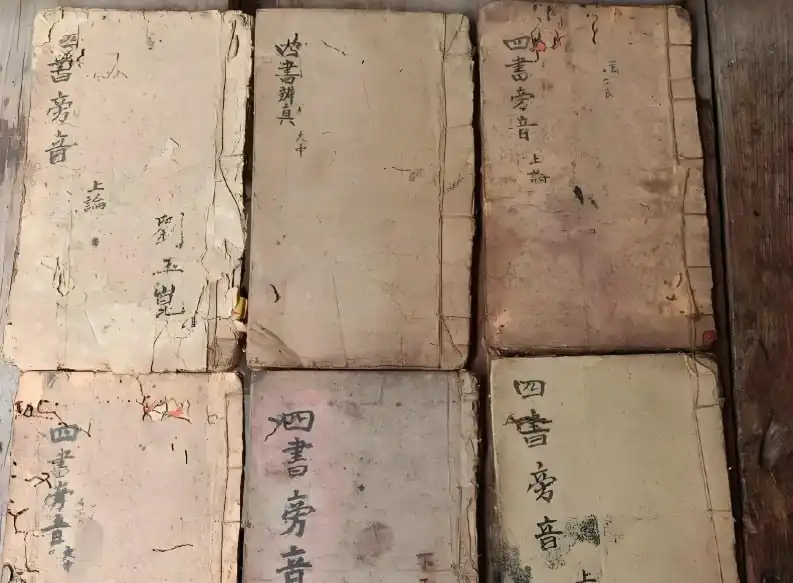 四書旁音
上論
劉玉
四書辨真
大中
四書旁音
上論
四書旁音
大中
四書旁音
下
四書旁音
上